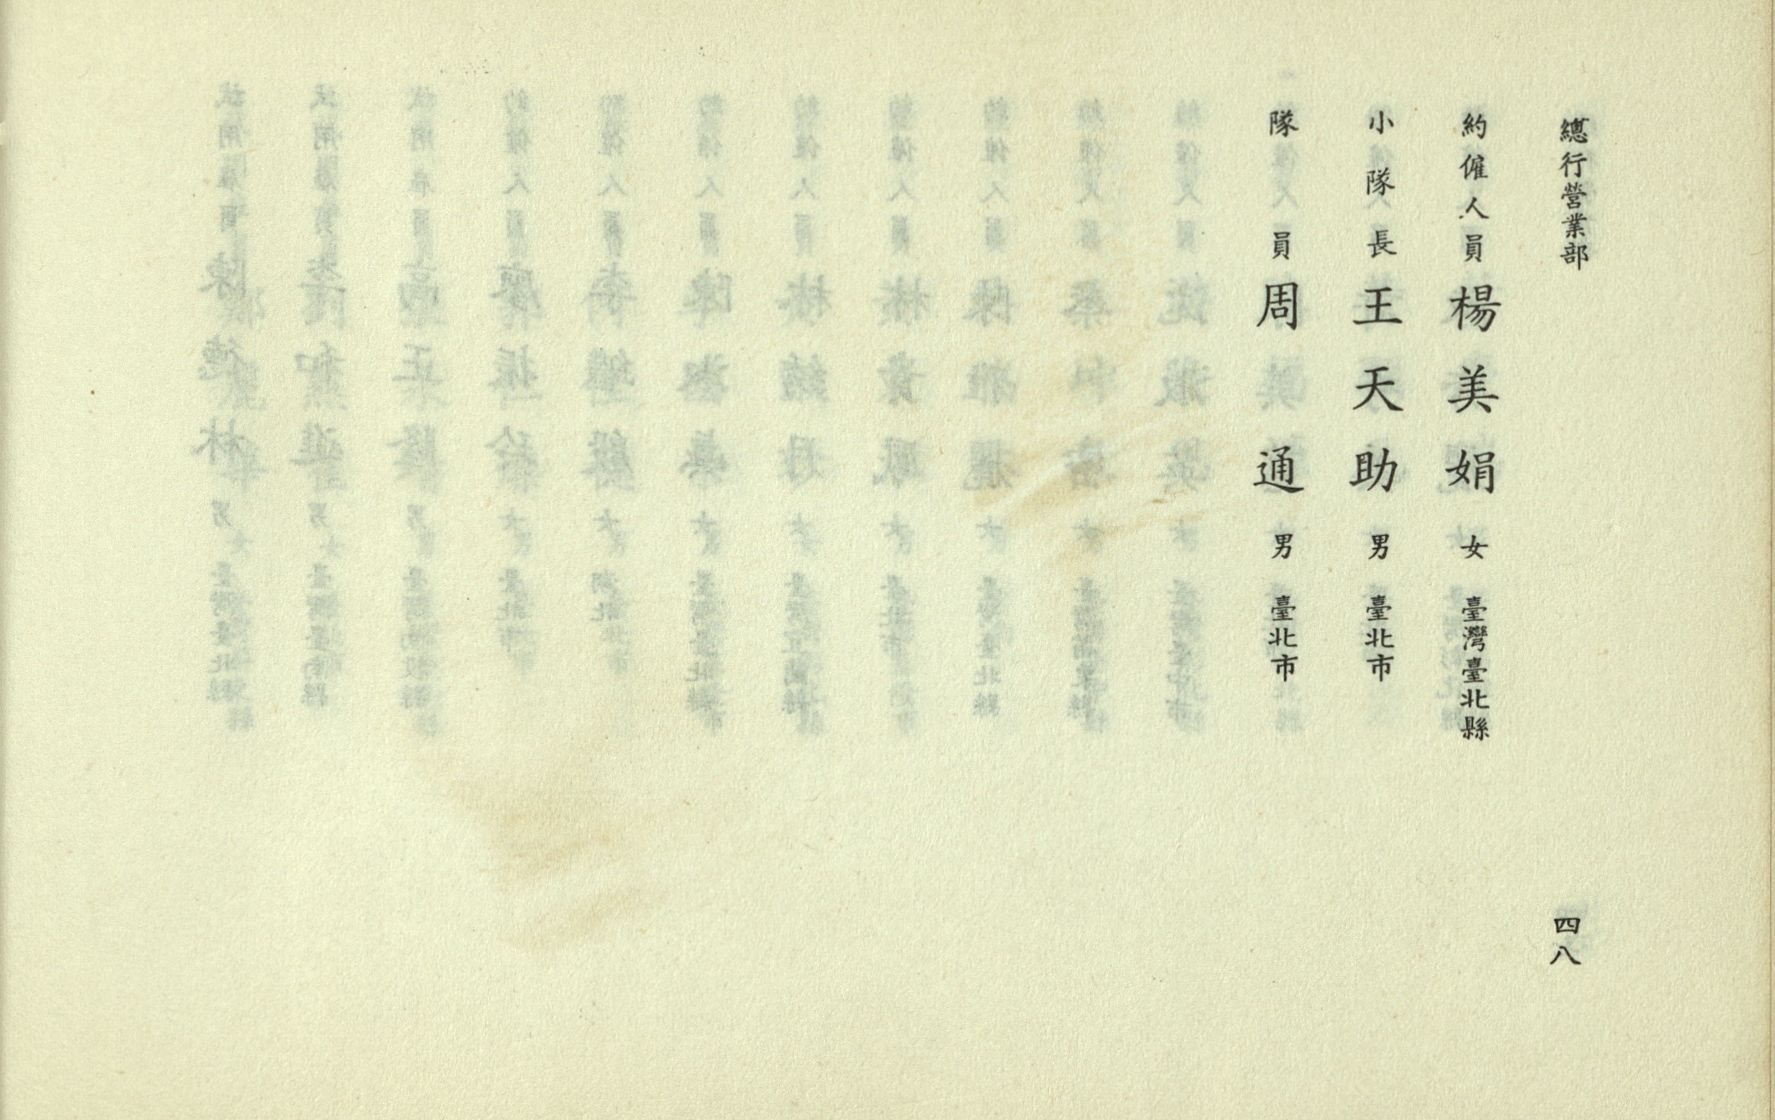 總行營業部
約僱人員 楊美娟 女 臺灣臺北縣
小隊長 王天助 男 臺北市
隊員 周通 男 臺北市
四八